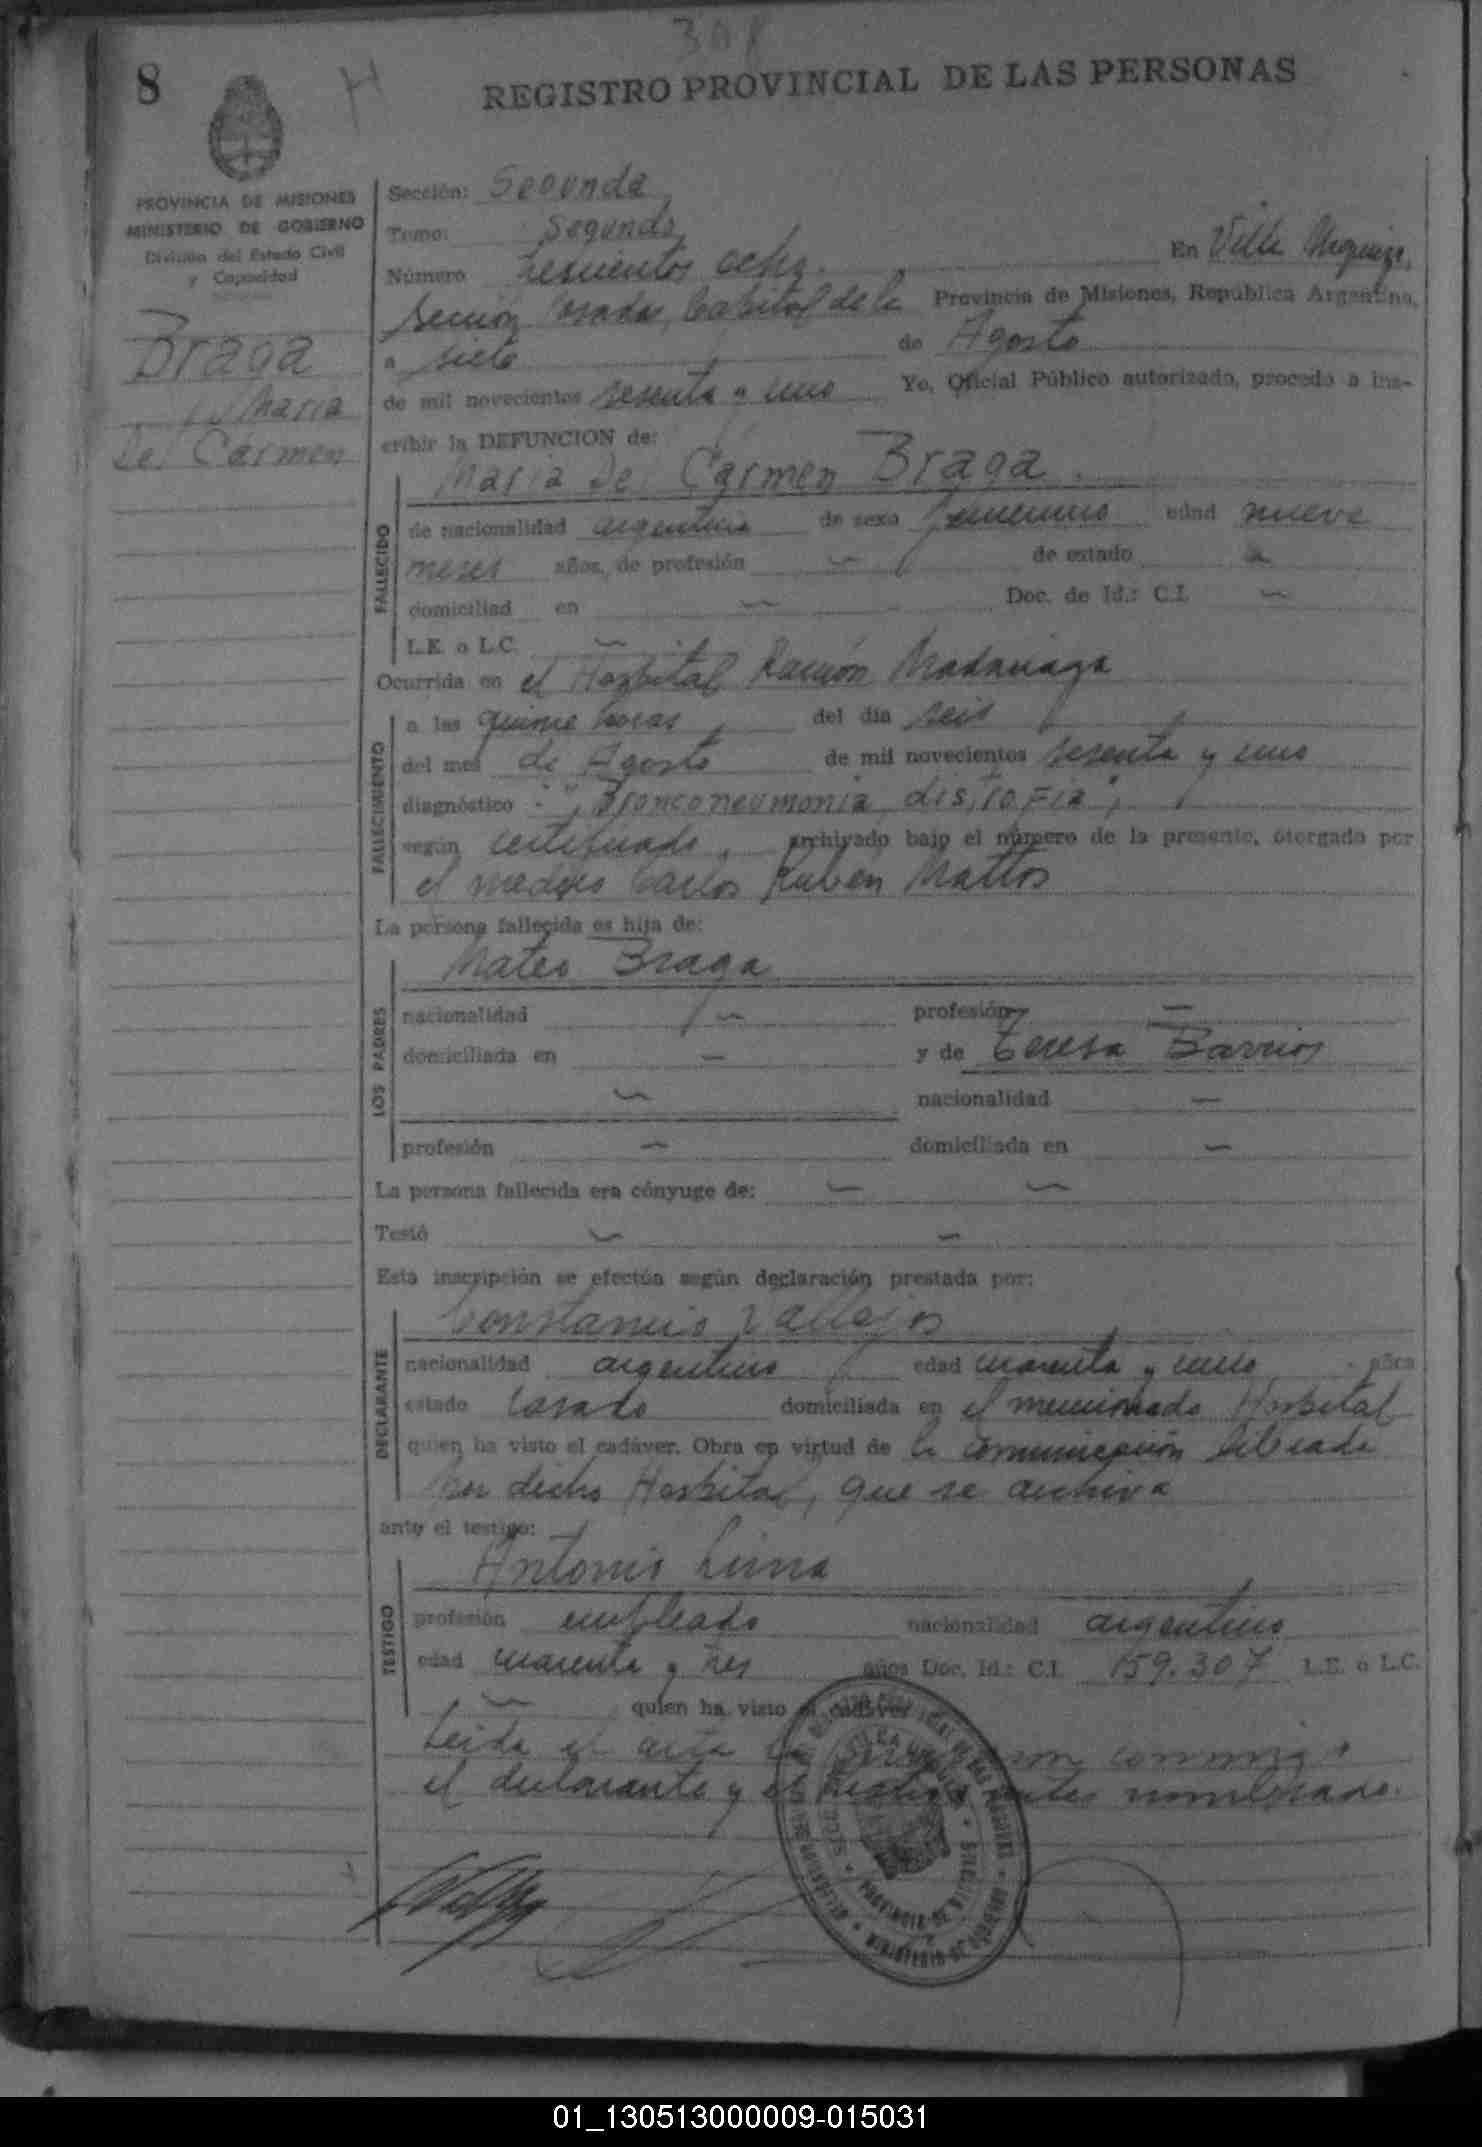 308
8
H
REGISTRO PROVINCIAL DE LAS PERSONAS
PROVINCIA DE MISIONES
MINISTERIO DE GOBIERNO
División del Estado Civil
y Capacidad
Braga
Maria
Del Carmen
Sección: Segunda
Tomo: Segundo
Número trescientos ocho. En Villa Urquiza,
Sección Posadas, Capital de la Provincia de Misiones, República Argentina,
a siete de Agosto
de mil novecientos sesenta y uno Yo, Oficial Público autorizado, procedo a ins-
cribir la DEFUNCION de:
Maria Del Carmen Braga.
FALLECIDO
de nacionalidad argentina de sexo femenino edad nueve
meses años, de profesión — de estado —
domiciliad en — Doc. de Id.: C.I. —
L.E. o L.C. —
Ocurrida en el Hospital Ramón Madariaga
FALLECIMIENTO
a las quince horas del día seis
del mes de Agosto de mil novecientos sesenta y uno
diagnóstico "Bronconeumonia, distrofia",
según certificado, archivado bajo el número de la presente, otorgado por
el médico Carlos Rubén Mattos
La persona fallecida es hija de:
LOS PADRES
Mateo Braga
nacionalidad — profesión —
domiciliada en — y de Teresa Barrios
— nacionalidad —
profesión — domiciliada en —
La persona fallecida era cónyuge de: — —
Testó — —
Esta inscripción se efectúa según declaración prestada por:
DECLARANTE
Constancio Vallejos
nacionalidad argentino edad cuarenta y uno años
estado casado domiciliada en el mencionado Hospital
quien ha visto el cadáver. Obra en virtud de la comunicación librada
por dicho Hospital, que se archiva
ante el testigo:
TESTIGO
Antonio Luna
profesión empleado nacionalidad argentino
edad cuarenta y tres años Doc. Id.: C.I. 159.307 L.E. o L.C.
— quien ha visto el cadáver
Leida el acta la conmigo
el declarante y el testigo antes nombrado.
PROVINCIA DE MISIONES
MINISTERIO DE GOBIERNO
01_130513000009-015031